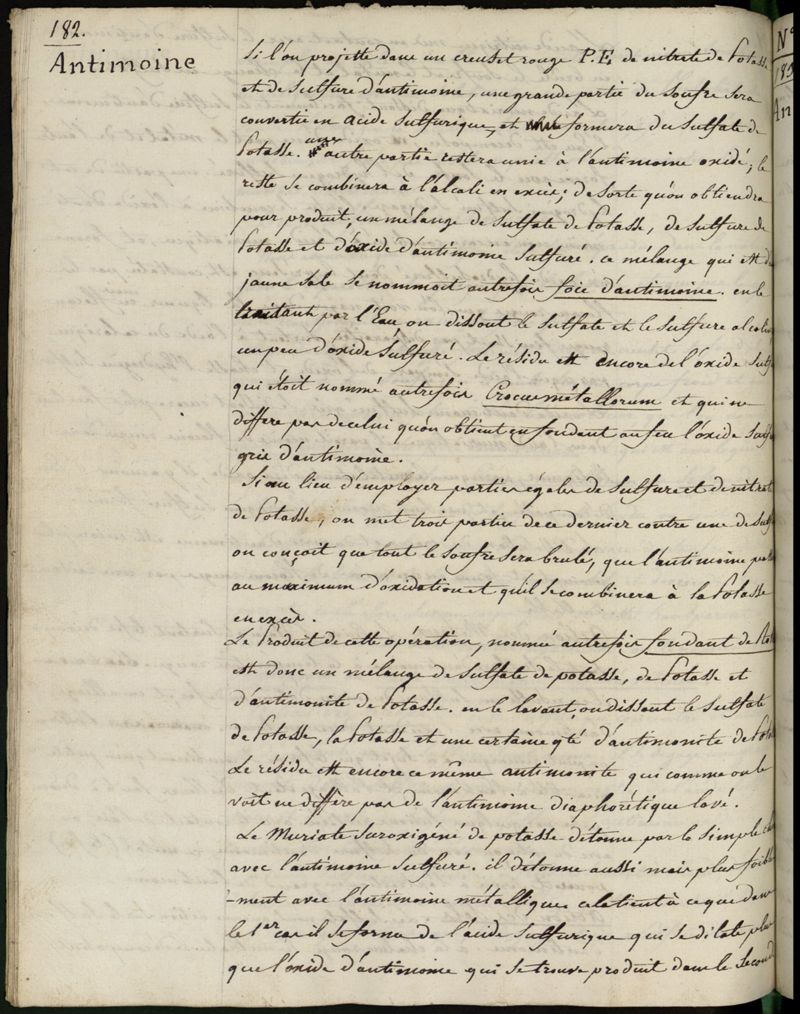 182.
Antimoine
Si l'on projette dans un creuset rouge P.E. de nitrate de Potasse
et de Sulfure d'antimoine, une grande partie du Soufre sera
convertie en acide Sulfurique, et formera du Sulfate de
Potasse. une autre partie restera unie à l'antimoine oxidé; le
reste se combinera à l'alcali en excès; de sorte qu'on obtiendra
pour produit, un mélange de Sulfate de Potasse, de Sulfure de
Potasse et d'oxide d'antimoine Sulfuré. ce mélange qui est d'un
jaune sale se nommoit autrefois foie d'antimoine. en le
traitant par l'Eau, on dissout le Sulfate et le Sulfure alcalin
un peu d'óxide Sulfuré. Le résidu est encore de l'óxide Sulf
qui étoit nommé autrefois Crocus métallorum et qui ne
differe pas de celui qu'on obtient en fondant au feu l'óxide Sulf
gris d'antimoine.
Si au lieu d'employer parties égales de Sulfure et de nitrat
de Potasse, on met trois parties de ce dernier contre une de Sulf
on conçoit que tout le Soufre sera brulé, que l'antimoine pas
au maximum d'óxidation et qu'il se combinera à la Potasse
en excès.
Le Produit de cette opération, nommé autrefois fondant de Rot
est donc un mélange de Sulfate de potasse, de Potasse et
d'antimonite de Potasse. en le lavant, on dissout le Sulfate
de Potasse, la Potasse et une certaine qté d'antimonite de Pot
Le résidu est encore ce même antimonite qui comme on le
voit ne diffère pas de l'antimoine diaphorétique lavé.
Le Muriate Suroxigéné de potasse détonne par le simple
avec l'antimoine Sulfuré. il détonne aussi mais plus foible
-ment avec l'antimoine métallique, cela tient à ce que dans
le 1er cas il se forme de l'acide Sulfurique qui se dilate plus
que l'óxide d'antimoine qui se trouve produit dans le Second
N°
An